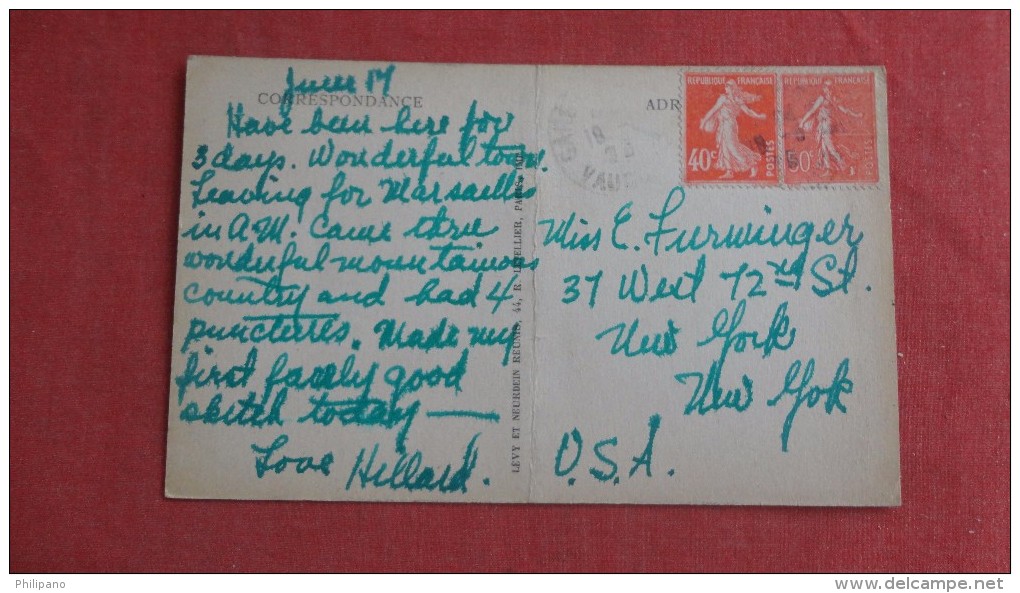 June 17
CORRESPONDANCE
Have been here for
3 days. Wonderful town.
Leaving for Marsailles
in A.M. Came thru
wonderful mountainous
country and had 4
punctures. Made my
first fairly good
sketch today —
Love Hillard.
LEVY ET NEURDEIN REUNIS, 44, R. LETELLIER, PARIS
ADR
REPUBLIQUE FRANÇAISE
40c
POSTES
REPUBLIQUE FRANÇAISE
50c
POSTES
GARE
18
VAU
Miss E. Furwinger
37 West 72nd St.
New York
New York
U.S.A.
Philipano
www.delcampe.net